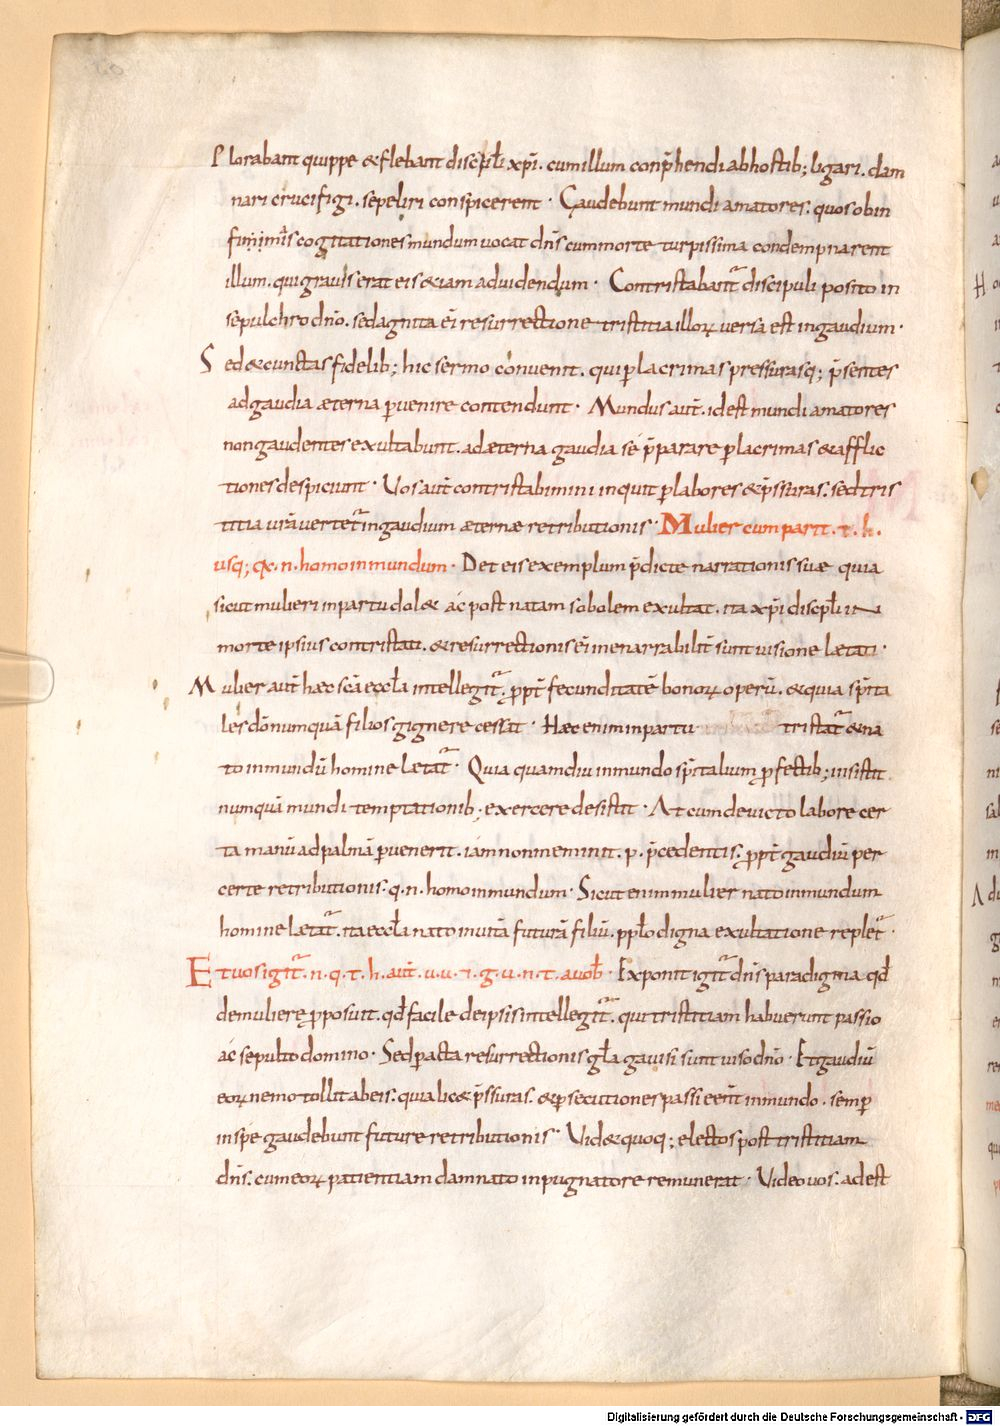 Plorabant quippe & flebant discipłi xp̄i. cum illum conp̄hendi ab hostib; ligari. dam
nari crucifigi. sepeliri conspicerent · Gaudebunt mundi amatores. quos ob in
fimis cogitationes mundum uocat dn̄s cum morte turpissima condempnarent
illum. qui grauis erat eis &iam ad uidendum · Contristabant᷑ discipuli posito in
sepulchro dn̄o. sed agnita ei᷒ resurrectione tristitia illoꝝ uersa est in gaudium ·
Sed & cunctas fidelib; hic sermo conuenit. qui ꝑ lacrimas pressurasq; p̄sentes
ad gaudia æterna ꝑuenire contendunt · Mundus aut̄. id est mundi amatores
non gaudentes exultabunt. ad æterna gaudia se p̄parare ꝑ lacrimas & afflic
tiones despiciunt · Uos aut̄ contristabimini inquit ꝑ labores & p̄ssuras. sed tris
titia ur̄a vertet᷑ in gaudium æternæ retributionis · Mulier cum parit. t. h.
usq; q̄. n. homo in mundum · Det eis exemplum p̄dicte narrationis suæ quia
sicut mulieri in partu dol& ac post natam sobolem exultat. ita xp̄i discipłi in
morte ipsius contristati. & resurrectionis ei᷒ inenarrabilit̄ sunt uisione lætati ·
Mulier aut̄ hæc sc̄a eccła intellegit᷑. ꝓpt̄ fecunditatē bonoꝝ operū. & quia sp̄ita
les do nūquā filios gignere cessat · Hæc enim in partu tristat᷑ & na
to in mundū homine lætat᷑ · Quia quamdiu in mundo sp̄italium ꝓfectib; insistit
numquā mundi temptationib; exercere desistit · At cum deuicto labore cer
ta manū ad palmā ꝑuenerit. iam non meminit. p. p̄cedentis. ꝓpt̄ gaudiū per
certe retributionis. q. n. homo in mundum · Sicut enim mulier nato in mundum
homine lætat᷑. ita eccła nato in uitā futurā filiū. ppło digna exultatione replet᷑ ·
Et uos igit᷑. n. q. t. h. aut̄. u. u. t. g. u. n. t. a uob̄ · Exponit igit᷑ dn̄s paradigma qd̄
de muliere ꝓposuit. qd̄ facile de ipsis intellegit᷑. qui tristitiam habuerunt passio
ac sepulto domino · Sed ꝑacta resurrectionis gła gauisi sunt uiso dn̄o · Et gaudiū
eoꝝ nemo tollit ab eis. quia lic& p̄ssuras. & ꝑsecutiones passi eēnt in mundo. semꝑ
in spe gaudebunt future retributionis · Uid& quoq; electos post tristitiam
dn̄s. cum eoꝝ patientiam damnato inpugnatore remunerat · Uideo uos. adest
Digitalisierung gefördert durch die Deutsche Forschungsgemeinschaft - DFG